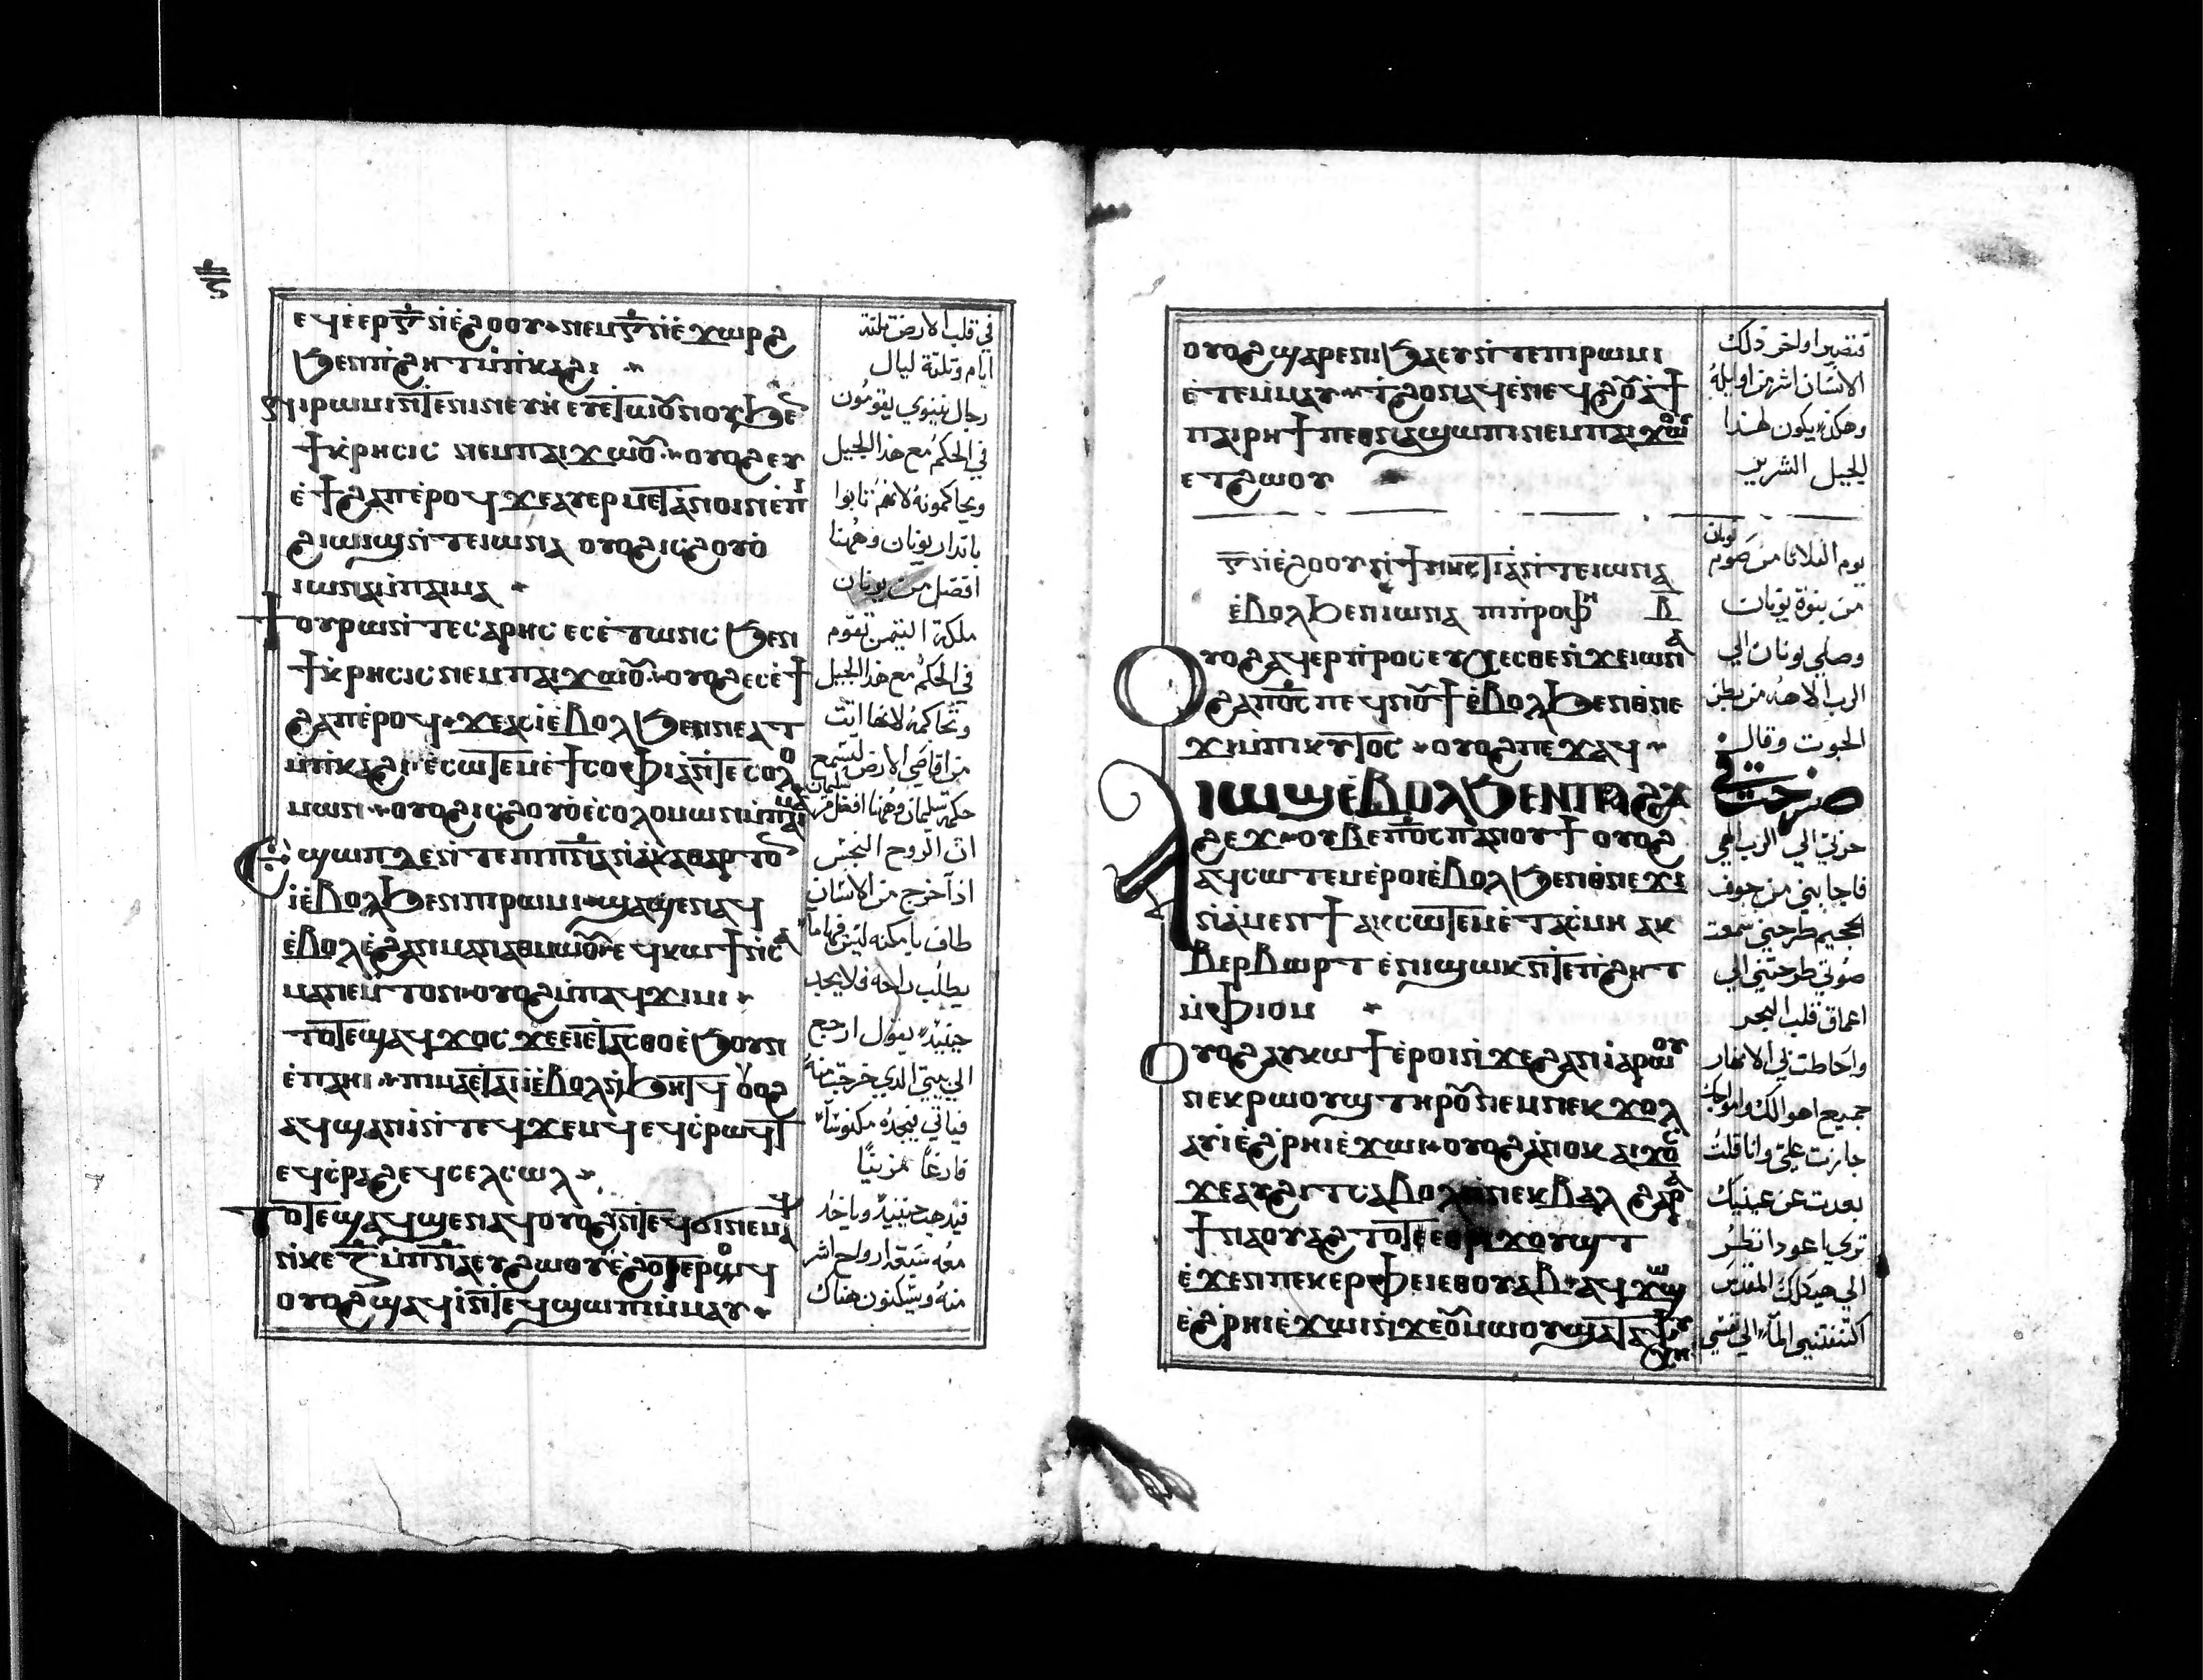 ⲉϥⲉ̀ⲉⲣ ⲅ̅ ⲛ̀ⲉ̀ϩⲟⲟⲩ ⲛⲉⲙ ⲅ̅ ⲛ̀ⲉ̀ϫⲱⲣϩ
ϧⲉⲛ ⲡ̀ϩⲏⲧ ⲙ̀ⲡ̀ⲕⲁϩⲓ
ⲣⲱⲙⲓ ⲛ̀ⲧⲉ ⲛⲓⲛⲉⲩⲏ̀ ⲉⲩⲉ̀ⲧⲱⲟⲩⲛⲟⲩ ϧⲉⲛ
ϯⲕ̀ⲣⲏⲥⲓⲥ ⲛⲉⲙ ⲡⲁⲓϫⲱⲟⲩ ⲟⲩⲟϩ ⲉⲩ
ⲉ̀ϯϩⲁⲡ ⲉ̀ⲣⲟϥ ϫⲉ ⲁⲩⲉⲣⲙⲉⲧⲁⲛⲟⲓⲛ ⲉ̀ⲡⲓ
ϩⲓⲱⲓϣ ⲛ̀ⲧⲉ ⲓⲱⲛⲁ ⲟⲩⲟϩ ⲓⲥ ϩⲟⲩⲟ̀
ⲓⲱⲛⲁ ⲙ̀ⲡⲁⲓⲙⲁ
ϯⲟⲩⲣⲱ ⲛ̀ⲧⲉ ⲥⲁⲣⲏⲥ ⲉⲥⲉ̀ⲧⲱⲛⲥ ϧⲉⲛ
ϯⲕ̀ⲣⲏⲥⲓⲥ ⲛⲉⲙ ⲡⲁⲓϫⲱⲟⲩ ⲟⲩⲟϩ ⲉⲥⲉ̀ϯ
ϩⲁⲡ ⲉ̀ⲣⲟϥ ϫⲉ ⲁⲥⲓ̀ ⲉ̀ⲃⲟⲗ ϧⲉⲛ ⲛⲉⲁⲧ
ⲙ̀ⲡ̀ⲕⲁϩⲓ ⲉ̀ⲥⲱⲧⲉⲙ ⲉ̀ϯⲥⲟⲫⲓⲁ̀ ⲛ̀ⲧⲉ ⲥⲟⲗⲟ
ⲙⲱⲛ ⲟⲩⲟϩ ⲓⲥ ϩⲟⲩⲟ̀ ⲉ̀ⲥⲟⲗⲟⲙⲱⲛ ⲙ̀ⲡⲁⲓⲙⲁ
Ⲉϣⲱⲡ ⲇⲉ ⲛ̀ⲧⲉ ⲡⲓⲡⲛ̅ⲁ ⲛ̀ⲁ̀ⲕⲁⲑⲁⲣⲧⲟⲛ
ⲓ̀ ⲉ̀ⲃⲟⲗ ϧⲉⲛ ⲡⲓⲣⲱⲙⲓ ϣⲁϥϣⲉⲛⲁϥ
ⲉ̀ⲃⲟⲗ ⲉ̀ϩⲁⲛⲙⲁ ⲛⲁⲑⲙⲱⲟⲩ ⲉϥⲕⲱϯ ⲛ̀ⲥⲁ
ⲙⲁⲛⲉⲙ̀ⲧⲟⲛ ⲟⲩⲟϩ ⲙ̀ⲡⲁϥϫⲓⲙⲓ
ⲧⲟⲧⲉ ϣⲁϥϫⲟⲥ ϫⲉ ⲉⲓⲉ̀ⲧⲁⲥⲑⲟ ⲉ̀ϧⲟⲩⲛ
ⲉ̀ⲡⲁⲏⲓ ⲡⲓⲙⲁ ⲉ̀ⲧⲁⲓⲓ̀ ⲉ̀ⲃⲟⲗ ⲛ̀ϧⲏⲧϥ ⲟⲩⲟϩ
ⲁϥϣⲁⲛⲓ̀ ⲛ̀ⲧⲉϥϫⲉⲙϥ ⲉϥⲥ̀ⲣⲱϥⲧ
ⲉϥⲥ̀ⲣⲁϩ ⲉϥⲥⲉⲗⲥⲱⲗ
Ⲧⲟⲧⲉ ϣⲁϥϣⲉⲛⲁϥ ⲟⲩⲟϩ ⲛ̀ⲧⲉϥϭⲓ ⲛⲉⲙⲁϥ
ⲛ̀ⲕⲉ ⲍ̅ ⲙ̀ⲡⲛ̅ⲁ ⲉⲩϩⲱⲟⲩ ⲉ̀ϩⲟⲧⲉⲣⲟϥ
ⲟⲩⲟϩ ϣⲁϥⲓ̀ ⲛ̀ⲧⲉϥϣⲱⲡⲓ ⲙ̀ⲙⲁⲩ
في قلب الارض تلتة
ايام وتلتة ليال
رجال نينوي يقومون
في الحكم مع هذا الجيل
ويحاكمونه لانهم تابوا
بانذار يونان وههنا
افضل من يونان
ملكة التيمن تقوم
في الحكم مع هذا الجيل
وتحاكمه لانها اتت
من اقاصي الارض لتسمع
حكمة سليمان وههنا افضل من سليمان
ان الروح النجس
اذا خرج من الانسان
طاف بامكنه ليس فيها ما
يطلب راحه فلا يجد
حينيذ يقول ارجع
الي بيتي الذي خرجت منه
فياتي فيجده مكنوسًا
فارغًا مزينًا
فيذهب حينيذ وياخذ
معه سبعة ارواح اشر
منه ويسكنون هناك
ⲟⲩⲟϩ ϣⲁⲣⲉ ⲛⲓϧⲁⲉⲩ ⲛ̀ⲧⲉ ⲡⲓⲣⲱⲙⲓ
ⲉ̀ⲧⲉⲙ̀ⲙⲁⲩ ϩⲟ ⲛⲁϥ ⲉ̀ⲛⲉϥϩⲟⲩⲁϯ
ⲡⲁⲓⲣⲏϯ ⲡⲉⲑⲛⲁϣⲱⲡⲓ ⲛⲉⲙ ⲡⲁⲓϫⲱⲟⲩ
ⲉⲧϩⲱⲟⲩ
ⲅ̅ ⲛ̀ⲉ̀ϩⲟⲟⲩ ⲛ̀ϯⲛⲏⲥⲧⲓⲁ̀ ⲛ̀ⲧⲉ ⲓⲱⲛⲁ
ⲉ̀ⲃⲟⲗ ϧⲉⲛ ⲓⲱⲛⲁ ⲡⲓⲡ̀ⲣⲟⲫⲏ ⲃ̅
Ⲟⲩⲟϩ ⲁϥⲉⲣⲡ̀ⲣⲟⲥⲉⲩⲭⲉⲥⲑⲉ ⲛ̀ϫⲉ ⲓⲱⲛⲁ
ϩⲁ ⲡⲟ̅ⲥ ⲡⲉϥⲛⲟⲩϯ ⲉ̀ⲃⲟⲗ ϧⲉⲛ ⲑⲛⲉ
ϫⲓ ⲙ̀ⲡⲓⲕⲩⲧⲟⲥ ⲟⲩⲟϩ ⲡⲉϫⲁϥ
Ⲁⲓⲱϣ ⲉ̀ⲃⲟⲗ ϧⲉⲛ ⲡⲁϩⲟϫ
ϩⲉϫ ⲟⲩⲃⲉ ⲡⲟ̅ⲥ ⲡⲁⲛⲟⲩϯ ⲟⲩⲟϩ
ⲁϥⲥⲱⲧⲉⲙ ⲉ̀ⲣⲟⲓ ⲉ̀ⲃⲟⲗ ϧⲉⲛ ⲑⲛⲉϫⲓ
ⲛ̀ⲁ̀ⲙⲉⲛϯ ⲁⲕⲥⲱⲧⲉⲙ ⲉ̀ⲧⲁⲥ̀ⲙⲏ ⲁⲕ
ⲃⲉⲣⲃⲱⲣⲧ ⲉ̀ⲛⲓϣⲱⲕ ⲛ̀ⲧⲉ ⲡ̀ϩⲏⲧ
ⲙ̀ⲫⲓⲟⲙ
Ⲟⲩⲟϩ ⲁⲩⲕⲱϯ ⲉ̀ⲣⲟⲓ ⲛ̀ϫⲉ ϩⲁⲛⲓⲁⲣⲱⲟⲩ
ⲛⲉⲕⲣⲱⲟⲩϣ ⲧⲏⲣⲟⲩ ⲛⲉⲙ ⲛⲉⲕϫⲟⲗ
ⲁⲩⲓ̀ ⲉ̀ϩ̀ⲣⲏⲓ ⲉ̀ϫⲱⲓ ⲟⲩⲟϩ ⲁ̀ⲛⲟⲕ ⲁⲓϫⲟⲥ
ϫⲉ ⲁⲩϩⲓⲧ ⲥⲁⲃⲟⲗ ⲛ̀ⲛⲉⲕⲃⲁⲗ ϩⲁⲣⲁ
ϯⲛⲁⲟⲩⲁϩⲧⲟⲧ ⲉ̀ϫⲟⲩϣⲧ
ⲉ̀ϫⲉⲛ ⲡⲉⲕⲉⲣⲫⲉⲓ ⲉⲑⲟⲩⲁⲃ ⲁϥϫⲱϣ
ⲉ̀ϩ̀ⲣⲏⲓ ⲉ̀ϫⲱⲓ ⲛ̀ϫⲉ ⲟⲩⲙⲱⲟⲩ ϣⲁ ⲧⲁⲯⲩⲭⲏ
فتصير اواخر ذلك
الانسان اشر من اوايله
وهكذا يكون لهذا
الجيل الشرير
يوم الثلاثا من صوم يونان
من نبوة يونان
وصلي يونان الي
الرب الاهه من بطن
الحوت وقال
صرخت في
حزني الي الرب الهي
فاجابني من جوف
الجحيم طرحتني سمعت
صوتي طرحتني الي
اعماق قلب البحر
واحاطت بي الانهار
جميع اهوالك وامواجك
جازت علي وانا قلت
بعدت عن عينيك
تري اعود انظر
الي هيكلك المقدس
اكتنفتني المآ الي نفسي